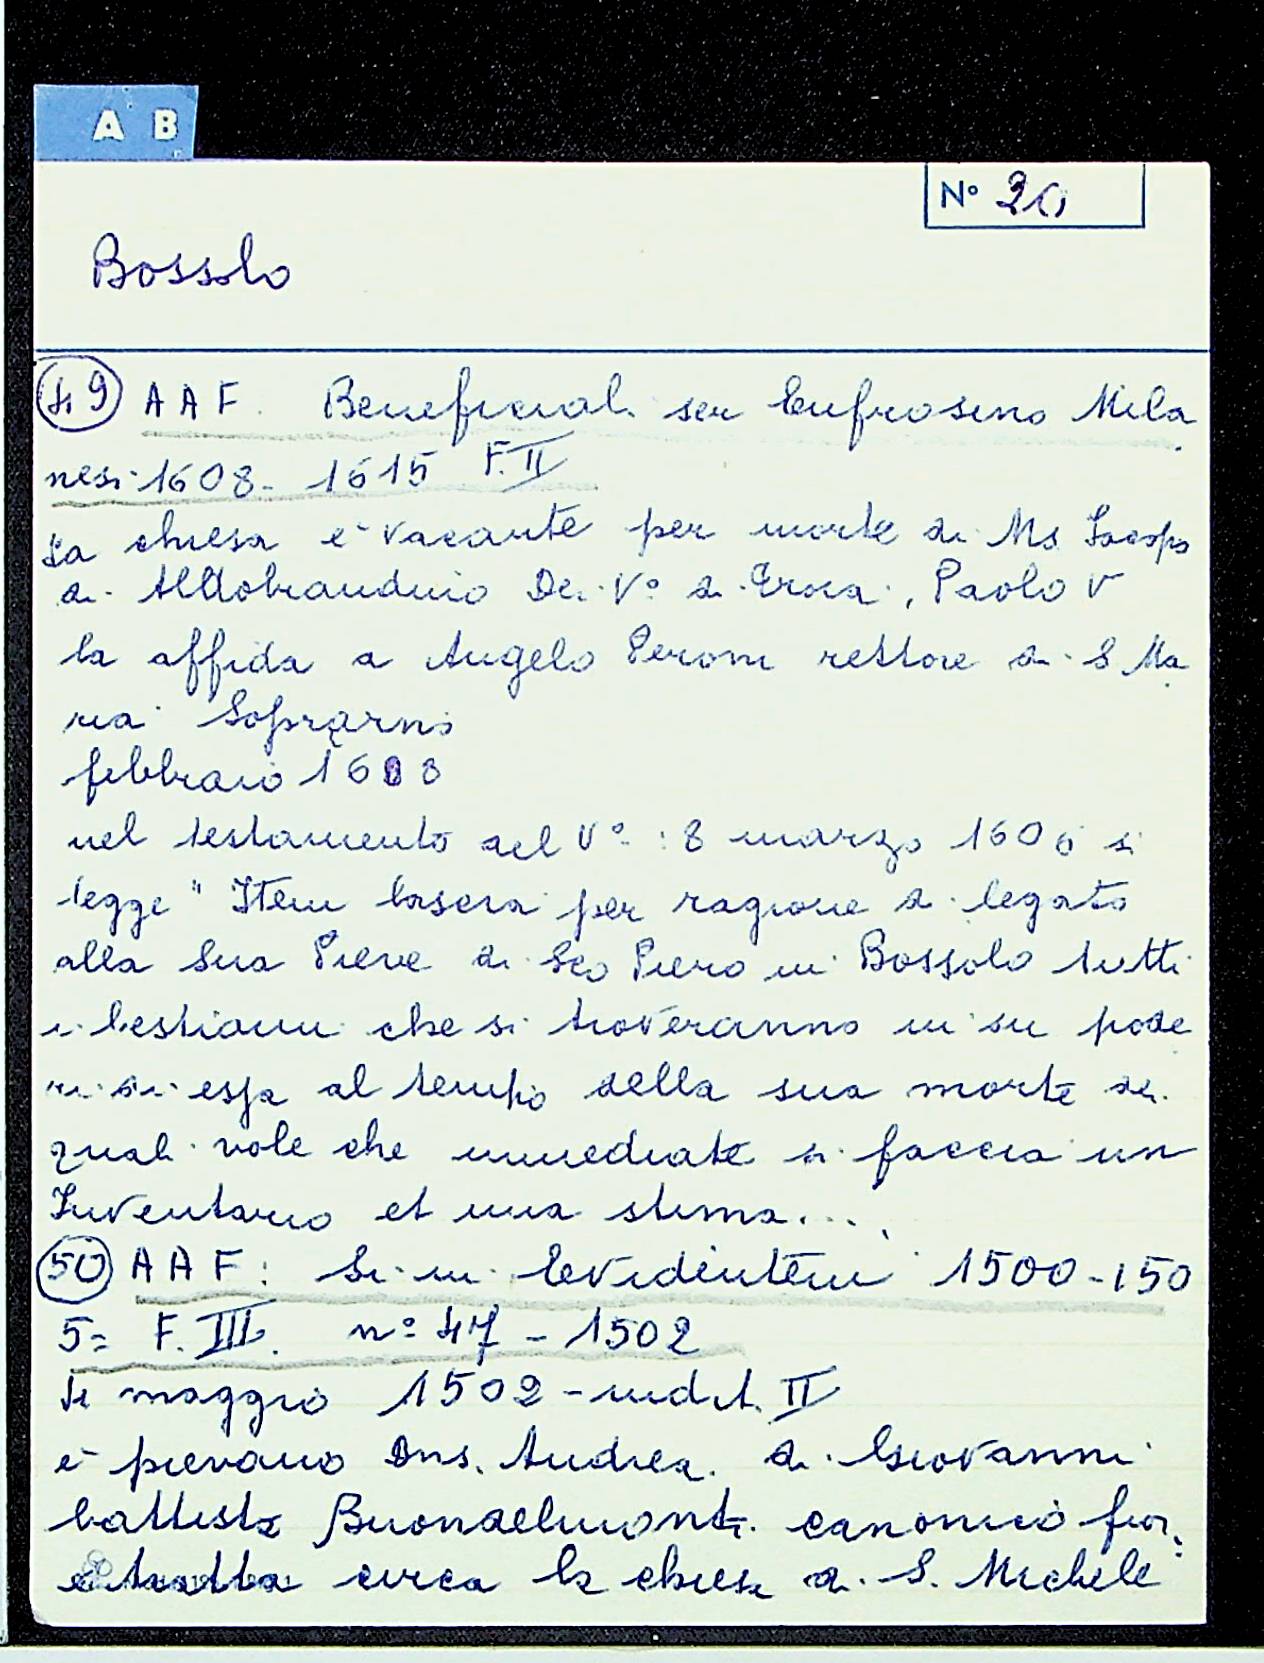 A B
N° 20
Bossolo
49 A A F. Beneficiali ser Eufrosino Mila
nesi 1608 - 1615 F. II
La chiesa è vacante per morte di Ms Jacopo
di Aldobrandino Paolo V
la affida a Angelo Peroni rettore di S Ma
ria Soprarno
febbraio 1608
nel testamento del V° : 8 marzo 1606 si
legge " Item lascia per ragione di legato
alla Sua Pieve di Sco Piero in Bossolo tutti
i bestiami che si troveranno in su pode
ri di essa al tempo della sua morte dei
quali vole che immediate si faccia un
Inventario et una stima....
50 A A F : Si in Evidentem 1500 - 150
5= F. III. n° 47 - 1502
4 maggio 1502 - indit. II
è pievano Dns. Andrea di Giovanni
battista Buondelmonti canonico fior.
tratta circa la chiesa di S. Michele